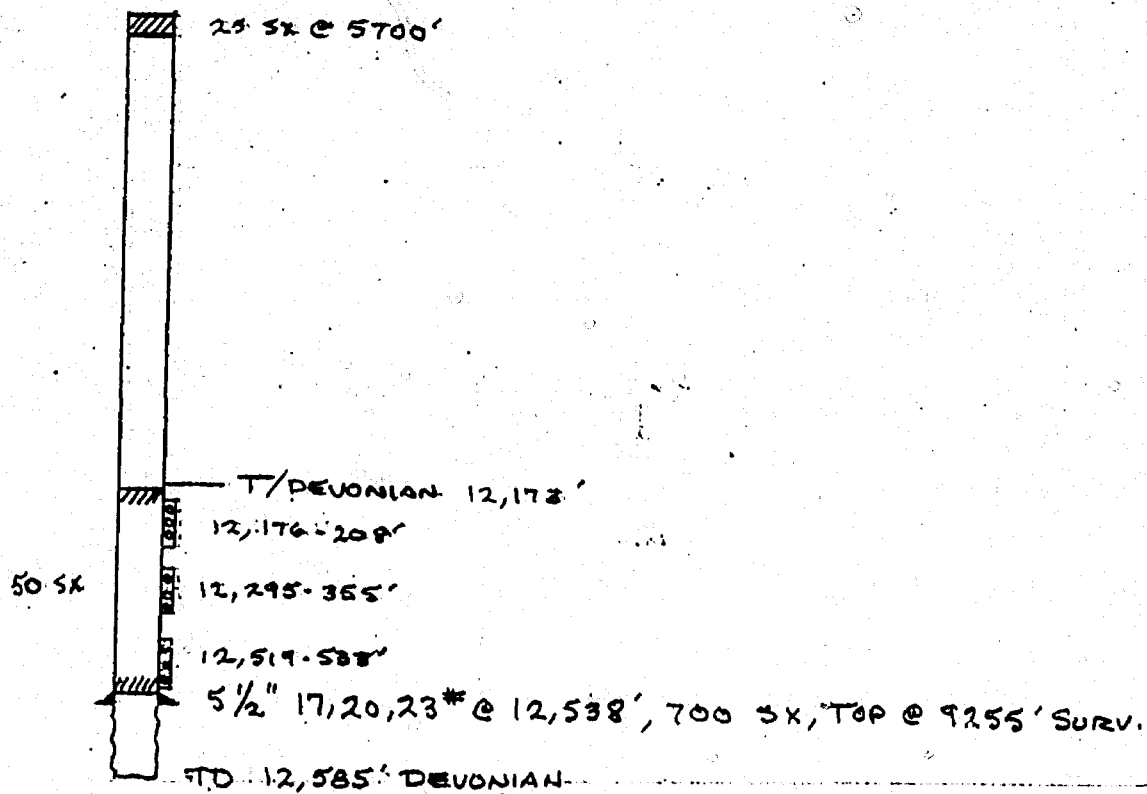 25 SX @ 5700'
T/DEVONIAN 12,173'
12,176-208'
50 SX
12,295-355'
12,519-538'
5 1/2" 17,20,23# @ 12,538', 700 SX, TOP @ 9255' SURV.
TD 12,585' DEVONIAN